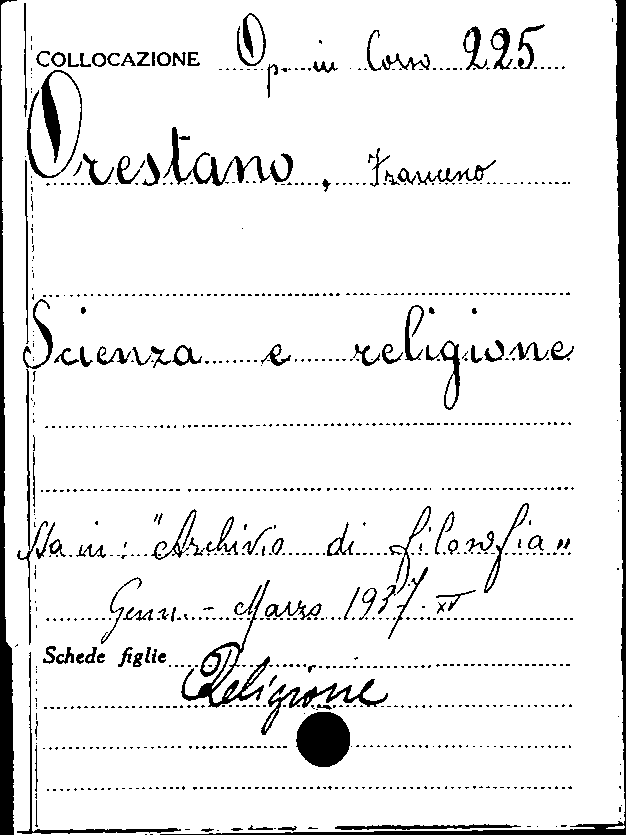 COLLOCAZIONE Op. in Corso 225
Orestano, Francesco
Scienza e religione
Sta in: "Archivio di filosofia"
Genn. - Marzo 1937. XV
Schede figlie
Religione